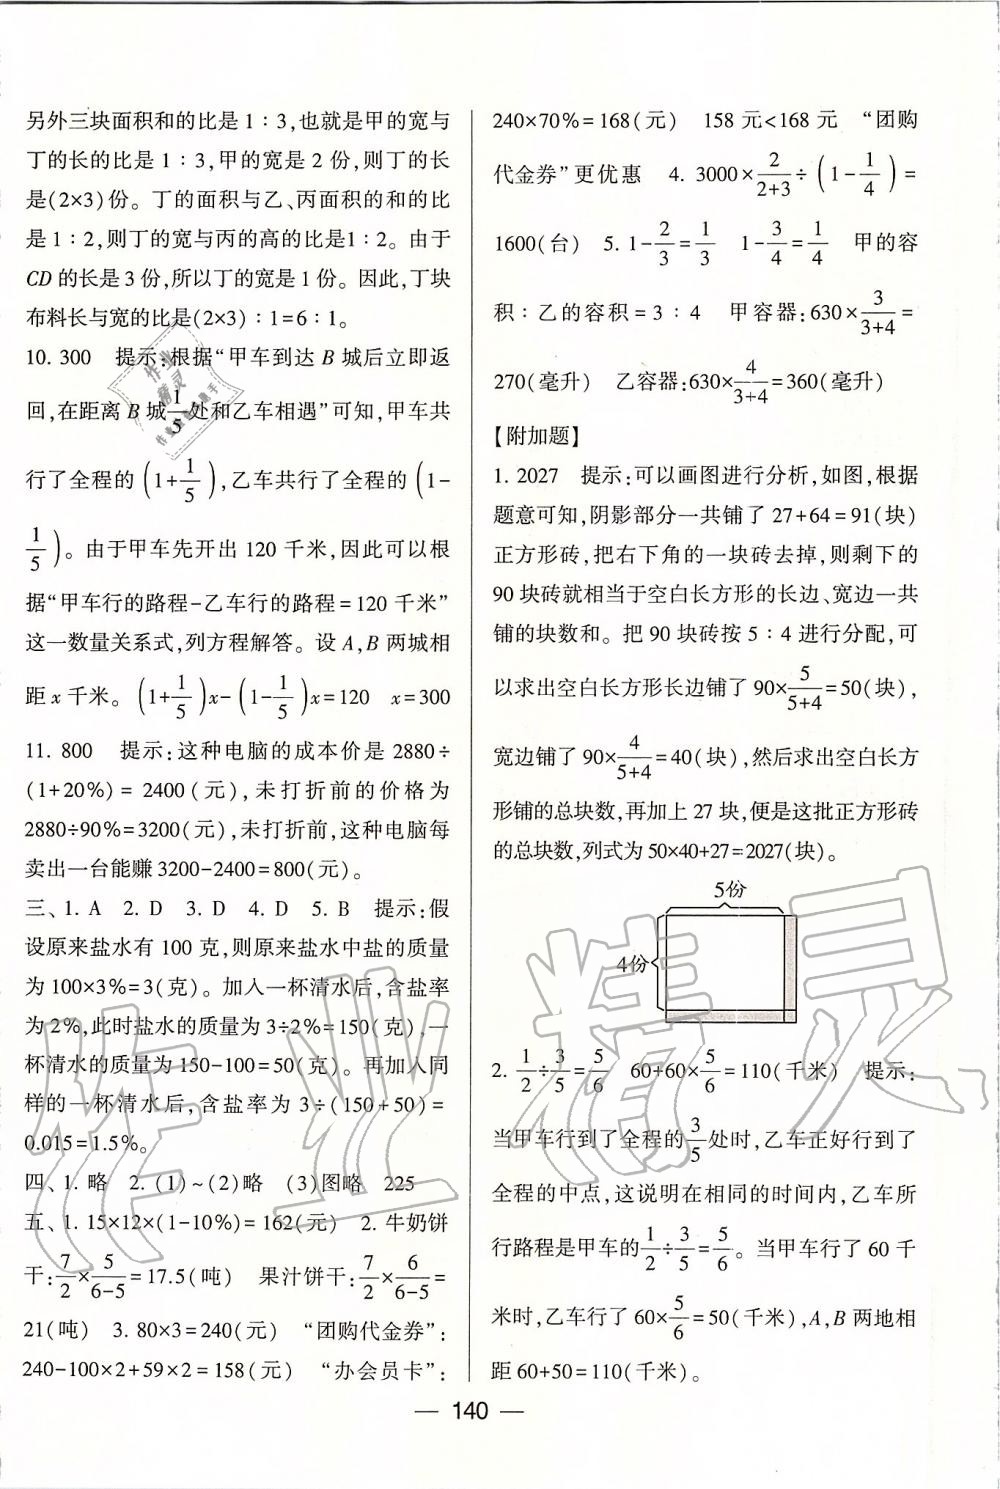 另外三块面积和的比是 1∶3,也就是甲的宽与
丁的长的比是 1∶3,甲的宽是 2 份,则丁的长
是(2×3)份。丁的面积与乙、丙面积的和的比
是 1∶2,则丁的宽与丙的高的比是1∶2。由于
CD 的长是 3 份,所以丁的宽是 1 份。因此,丁块
布料长与宽的比是(2×3)∶1=6∶1。
10. 300 提示:根据“甲车到达 B 城后立即返
回,在距离 B 城1/5处和乙车相遇”可知,甲车共
行了全程的(1+1/5),乙车共行了全程的(1-
1/5)。由于甲车先开出 120 千米,因此可以根
据“甲车行的路程-乙车行的路程=120 千米”
这一数量关系式,列方程解答。设 A,B 两城相
距 x 千米。(1+1/5)x-(1-1/5)x=120 x=300
11. 800 提示:这种电脑的成本价是 2880÷
(1+20%)= 2400(元),未打折前的价格为
2880÷90%=3200(元),未打折前,这种电脑每
卖出一台能赚 3200-2400=800(元)。
三、1. A 2. D 3. D 4. D 5. B 提示:假
设原来盐水有 100 克,则原来盐水中盐的质量
为 100×3%=3(克)。加入一杯清水后,含盐率
为 2%,此时盐水的质量为 3÷2%=150(克),一
杯清水的质量为 150-100=50(克)。再加入同
样的一杯清水后,含盐率为 3÷(150+50)=
0.015=1.5%。
四、1. 略 2. (1)~(2)略 (3)图略 225
五、1. 15×12×(1-10%)=162(元) 2. 牛奶饼
干:7/2×5/(6-5)=17.5(吨) 果汁饼干:7/2×6/(6-5)=
21(吨) 3. 80×3=240(元) “团购代金券”:
240-100×2+59×2=158(元) “办会员卡”:
240×70%=168(元) 158 元<168 元 “团购
代金券”更优惠 4. 3000×2/(2+3)÷(1-1/4)=
1600(台) 5. 1-2/3=1/3 1-3/4=1/4 甲的容
积∶乙的容积=3∶4 甲容器:630×3/(3+4)=
270(毫升) 乙容器:630×4/(3+4)=360(毫升)
【附加题】
1. 2027 提示:可以画图进行分析,如图,根据
题意可知,阴影部分一共铺了 27+64=91(块)
正方形砖,把右下角的一块砖去掉,则剩下的
90 块砖就相当于空白长方形的长边、宽边一共
铺的块数和。把 90 块砖按 5∶4 进行分配,可
以求出空白长方形长边铺了 90×5/(5+4)=50(块),
宽边铺了 90×4/(5+4)=40(块),然后求出空白长方
形铺的总块数,再加上 27 块,便是这批正方形砖
的总块数,列式为 50×40+27=2027(块)。
5份
4份
2. 1/2÷3/5=5/6 60+60×5/6=110(千米) 提示:
当甲车行到了全程的3/5处时,乙车正好行到了
全程的中点,这说明在相同的时间内,乙车所
行路程是甲车的1/2÷3/5=5/6。当甲车行了 60 千
米时,乙车行了 60×5/6=50(千米),A,B 两地相
距 60+50=110(千米)。
— 140 —
作业精灵